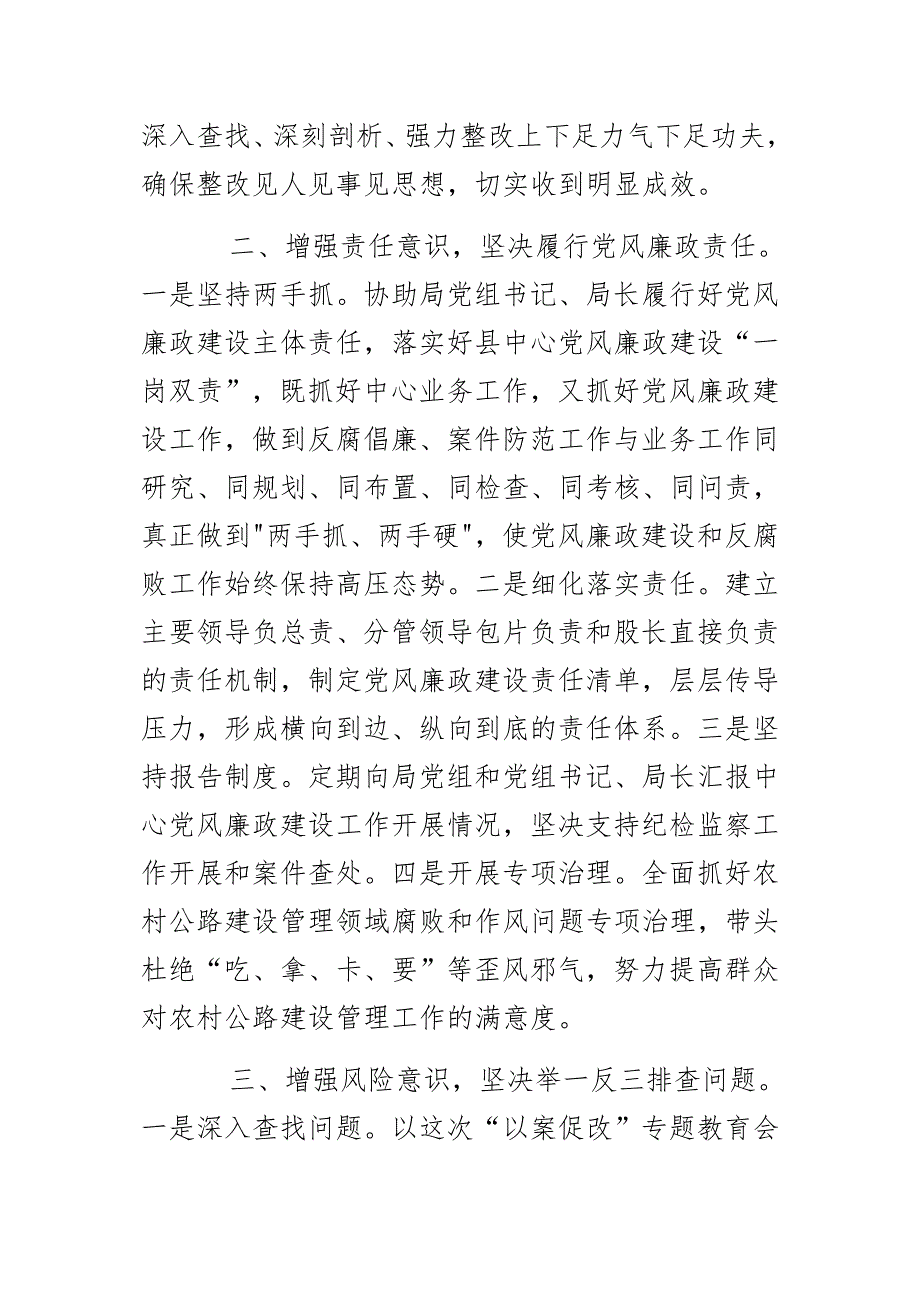 深入查找、深刻剖析、强力整改上下足力气下足功夫，
确保整改见人见事见思想，切实收到明显成效。
二、增强责任意识，坚决履行党风廉政责任。
一是坚持两手抓。协助局党组书记、局长履行好党风
廉政建设主体责任，落实好县中心党风廉政建设“一
岗双责”，既抓好中心业务工作，又抓好党风廉政建
设工作，做到反腐倡廉、案件防范工作与业务工作同
研究、同规划、同布置、同检查、同考核、同问责，
真正做到"两手抓、两手硬"，使党风廉政建设和反腐
败工作始终保持高压态势。二是细化落实责任。建立
主要领导负总责、分管领导包片负责和股长直接负责
的责任机制，制定党风廉政建设责任清单，层层传导
压力，形成横向到边、纵向到底的责任体系。三是坚
持报告制度。定期向局党组和党组书记、局长汇报中
心党风廉政建设工作开展情况，坚决支持纪检监察工
作开展和案件查处。四是开展专项治理。全面抓好农
村公路建设管理领域腐败和作风问题专项治理，带头
杜绝“吃、拿、卡、要”等歪风邪气，努力提高群众
对农村公路建设管理工作的满意度。
三、增强风险意识，坚决举一反三排查问题。
一是深入查找问题。以这次“以案促改”专题教育会